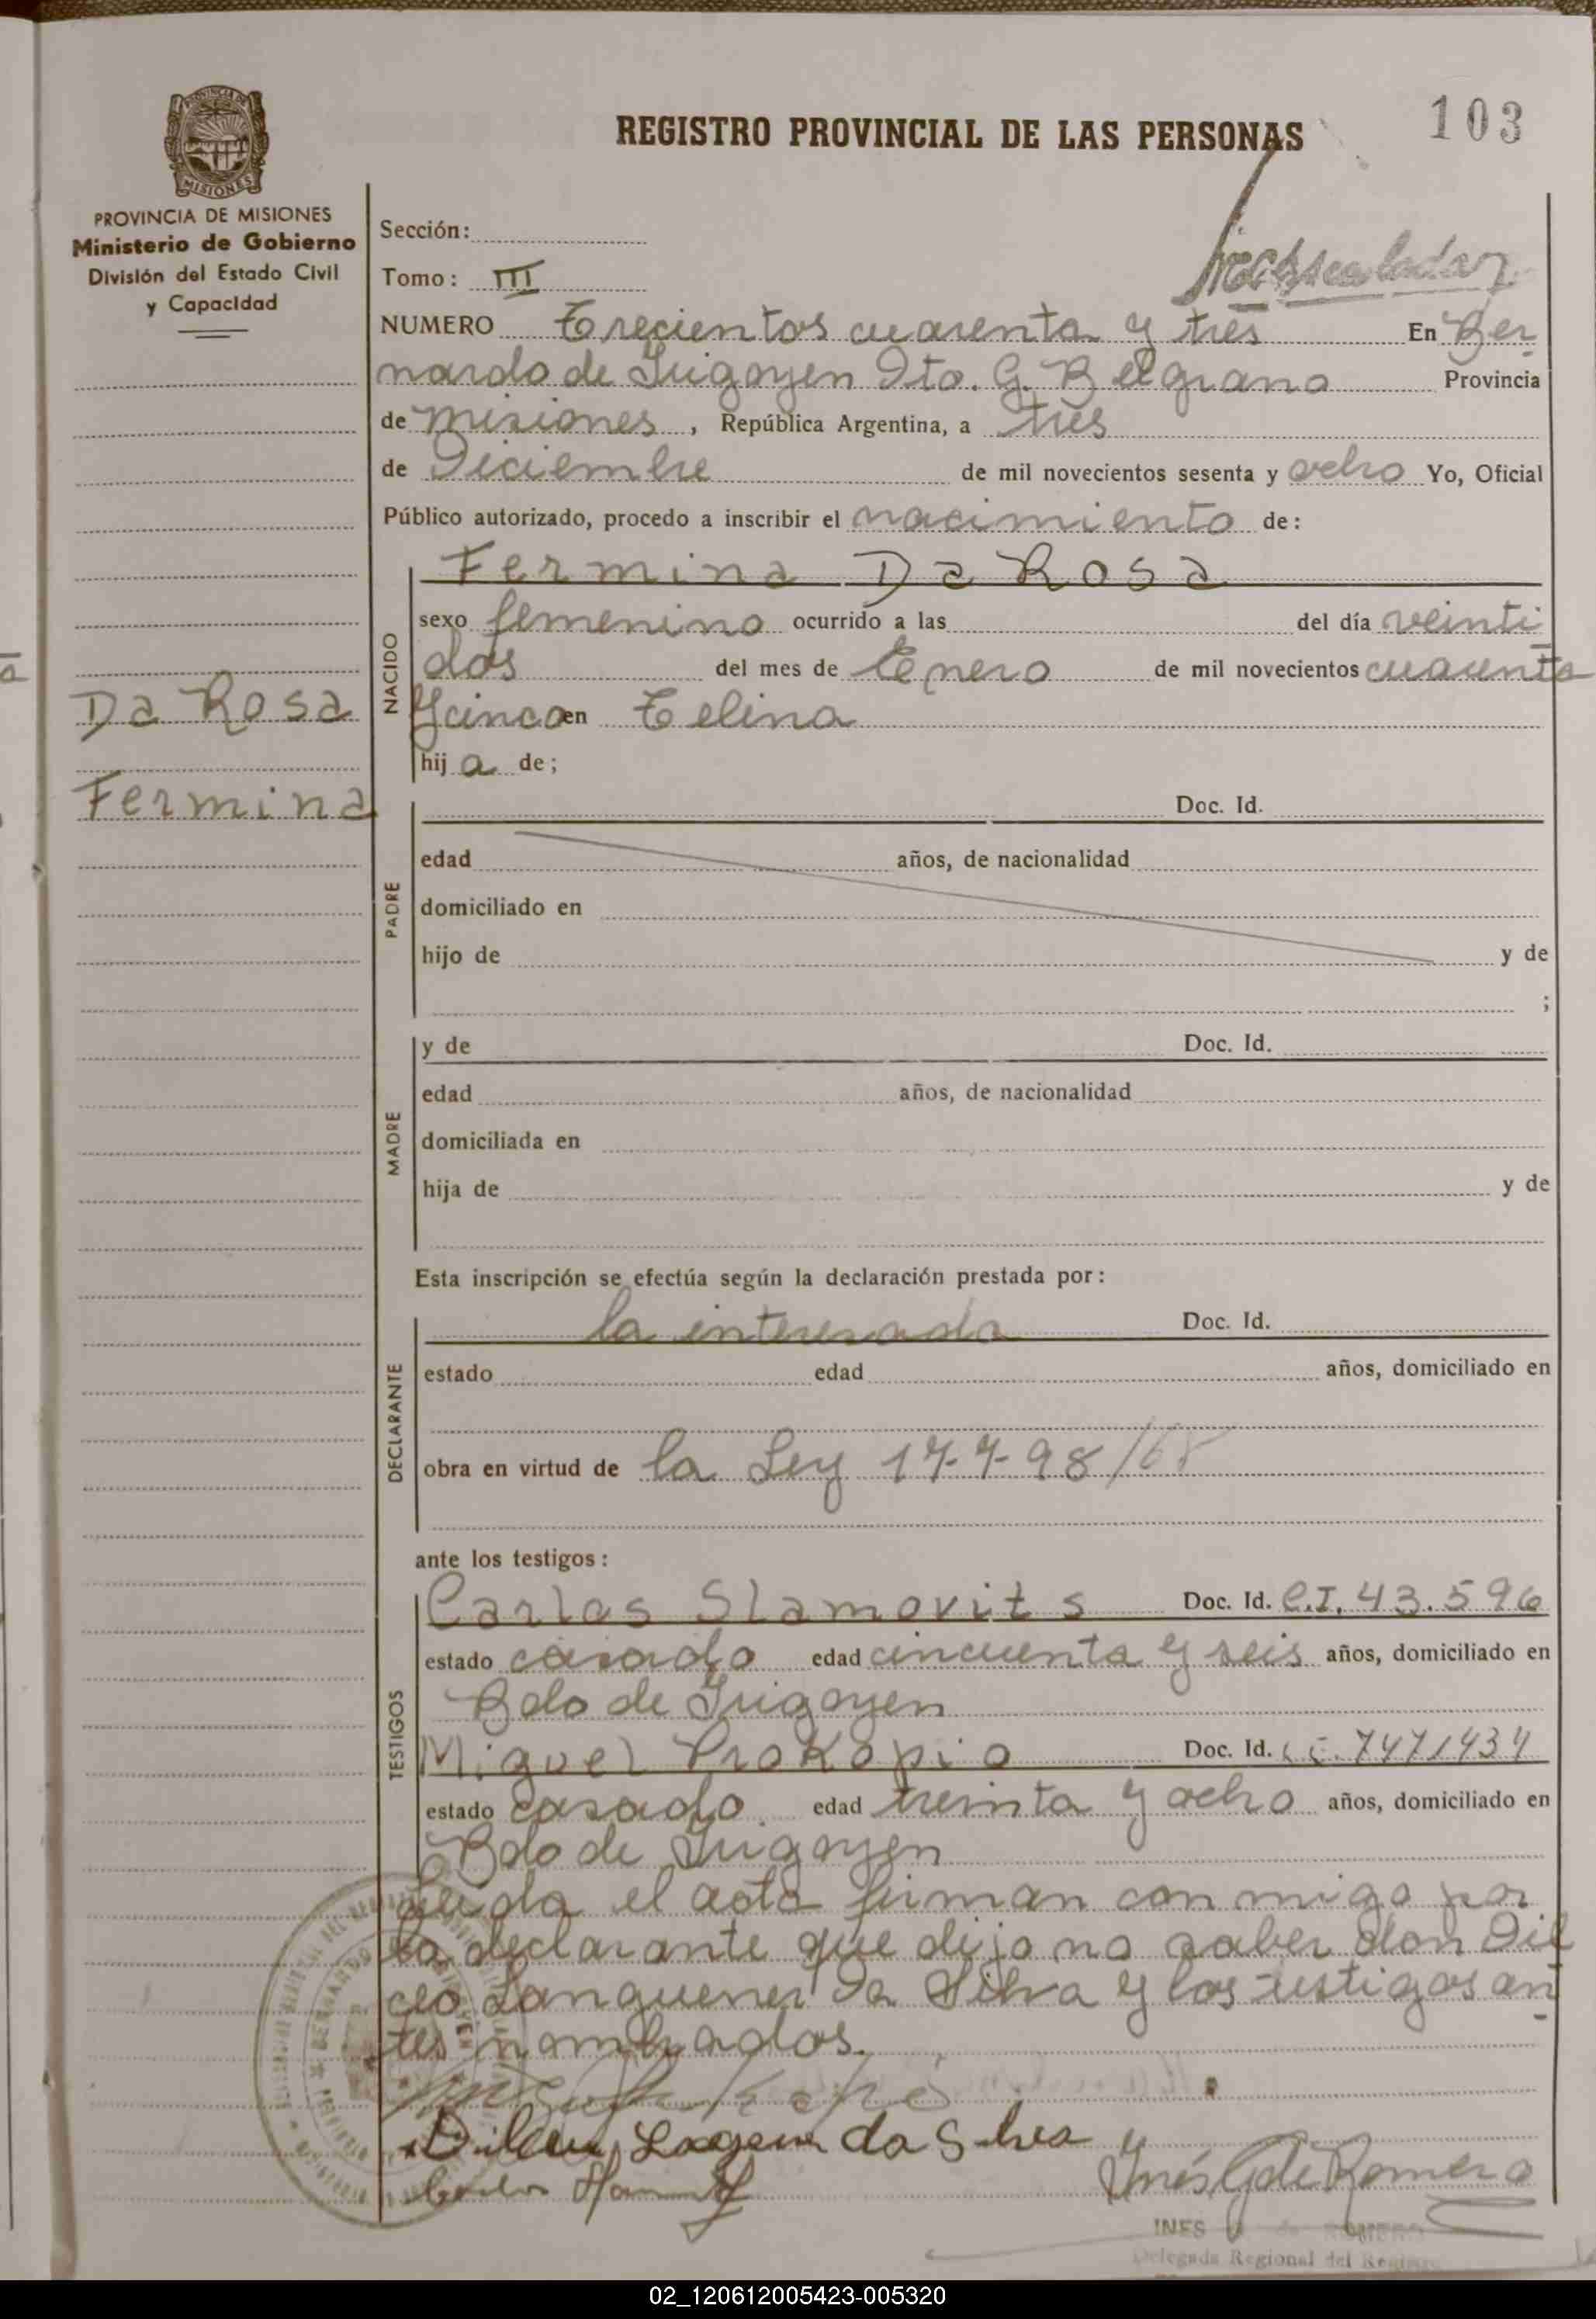 103
REGISTRO PROVINCIAL DE LAS PERSONAS
MISIONES
PROVINCIA DE MISIONES
Ministerio de Gobierno
División del Estado Civil
y Capacidad
Sección:
Tomo: III
NUMERO Trecientos cuarenta y tres En Ber
nardo de Irigoyen Dto. G. Belgrano Provincia
de misiones, República Argentina, a tres
de Diciembre de mil novecientos sesenta y ocho Yo, Oficial
Público autorizado, procedo a inscribir el nacimiento de:
Fermina Da Rosa
NACIDO
sexo femenino ocurrido a las del día veinti
dos del mes de Enero de mil novecientos cuarenta
y cinco en Telina
hij a de;
Da Rosa
Fermina
PADRE
Doc. Id.
edad años, de nacionalidad
domiciliado en
hijo de y de
;
MADRE
y de Doc. Id.
edad años, de nacionalidad
domiciliada en
hija de y de
Esta inscripción se efectúa según la declaración prestada por:
DECLARANTE
la interesada Doc. Id.
estado edad años, domiciliado en
obra en virtud de la Ley 17-7-98/68
ante los testigos:
TESTIGOS
Carlos Slamovits Doc. Id. C.I. 43.596
estado casado edad cincuenta y seis años, domiciliado en
Bdo de Irigoyen
Miguel Prokopio Doc. Id. 7471434
estado casado edad treinta y ocho años, domiciliado en
Bdo de Irigoyen
Leida el acta firman con migo por
la declarante que dijo no saber don Dil
ceo Languener Da Silva y los testigos an
tes nombrados.
da Silva
Inés G de Romero
INES G de ROMERO
Delegada Regional del Registro
02_120612005423-005320